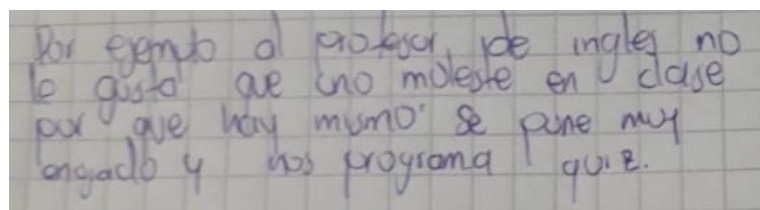 Por ejemplo al profesor de ingles no
le gusta que uno moleste en clase
por que hay mismo se pone muy
enojado y nos programa quiz.